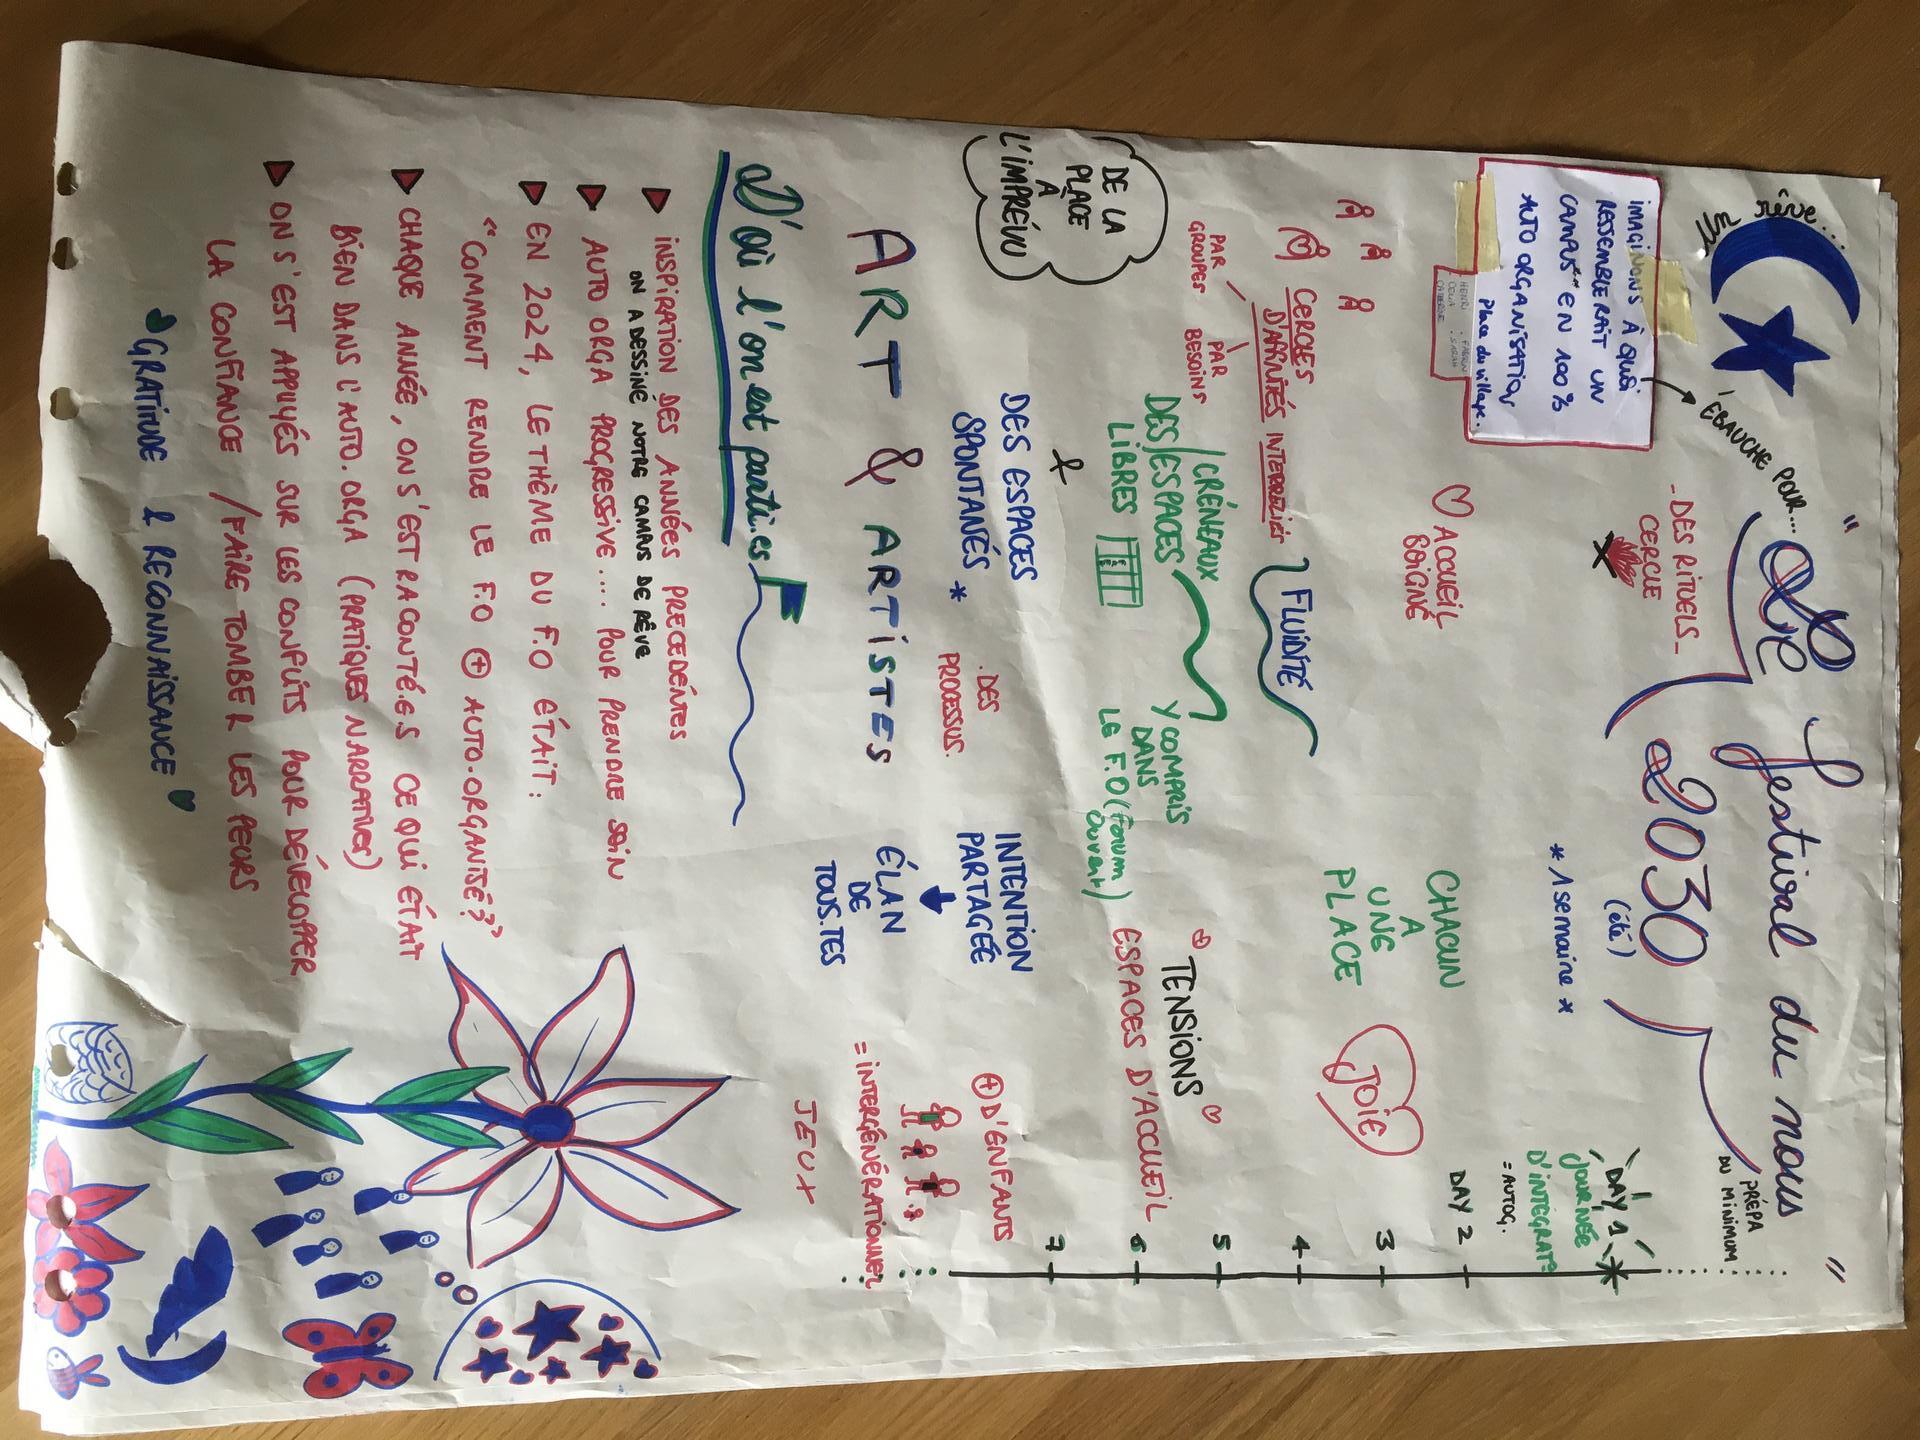 "Le festival du nous"
2030
(été)
* 1 semaine *
rêve...
ÉBAUCHE POUR...
IMAGINONS À QUOI
RESSEMBLERAIT UN
CAMPUS EN 100%
AUTO ORGANISATION
Place du village.
_DES RITUELS_
CERCLE
PRÉPA
DU MINIMUM
DAY 1
JOURNÉE
D'INTÉGRAT°
= AUTOG.
DAY 2
3
4
5
6
7
ACCUEIL
CHACUN
A
UNE
PLACE
JOIE
CERCLES
D'AFINITÉS INTERRELIÉS
PAR
GROUPES
PAR
BESOINS
FLUIDITÉ
DES / CRÉNEAUX
/ ESPACES
LIBRES
Y COMPRIS
DANS
LE F.O (Forum
Ouvert)
TENSIONS
ESPACES D'ACCUEIL
DE LA
PLACE
À
L'IMPRÉVU
&
DES ESPACES
SPONTANÉS *
. DES
PROCESSUS.
INTENTION
PARTAGÉE
ÉLAN
DE
TOUS.TES
+ D'ENFANTS
= INTERGÉNÉRATIONNEL
JEUX
ART & ARTISTES
D'où l'on est parti.es
INSPIRATION DES ANNÉES PRECEDENTES
ON A DESSINÉ NOTRE CAMPUS DE RÊVE
AUTO ORGA PROGRESSIVE.... POUR PRENDRE SOIN
EN 2024, LE THÈME DU F.O ÉTAIT :
"COMMENT RENDRE LE F.O + AUTO-ORGANISÉ ?"
CHAQUE ANNÉE, ON S'EST RACONTÉ.E.S CE QUI ÉTAIT
BIEN DANS L'AUTO.ORGA (PRATIQUES NARRATIVES)
ON S'EST APPUYÉS SUR LES CONFLITS POUR DÉVELOPPER
LA CONFIANCE / FAIRE TOMBER LES PEURS
GRATITUDE & RECONNAISSANCE